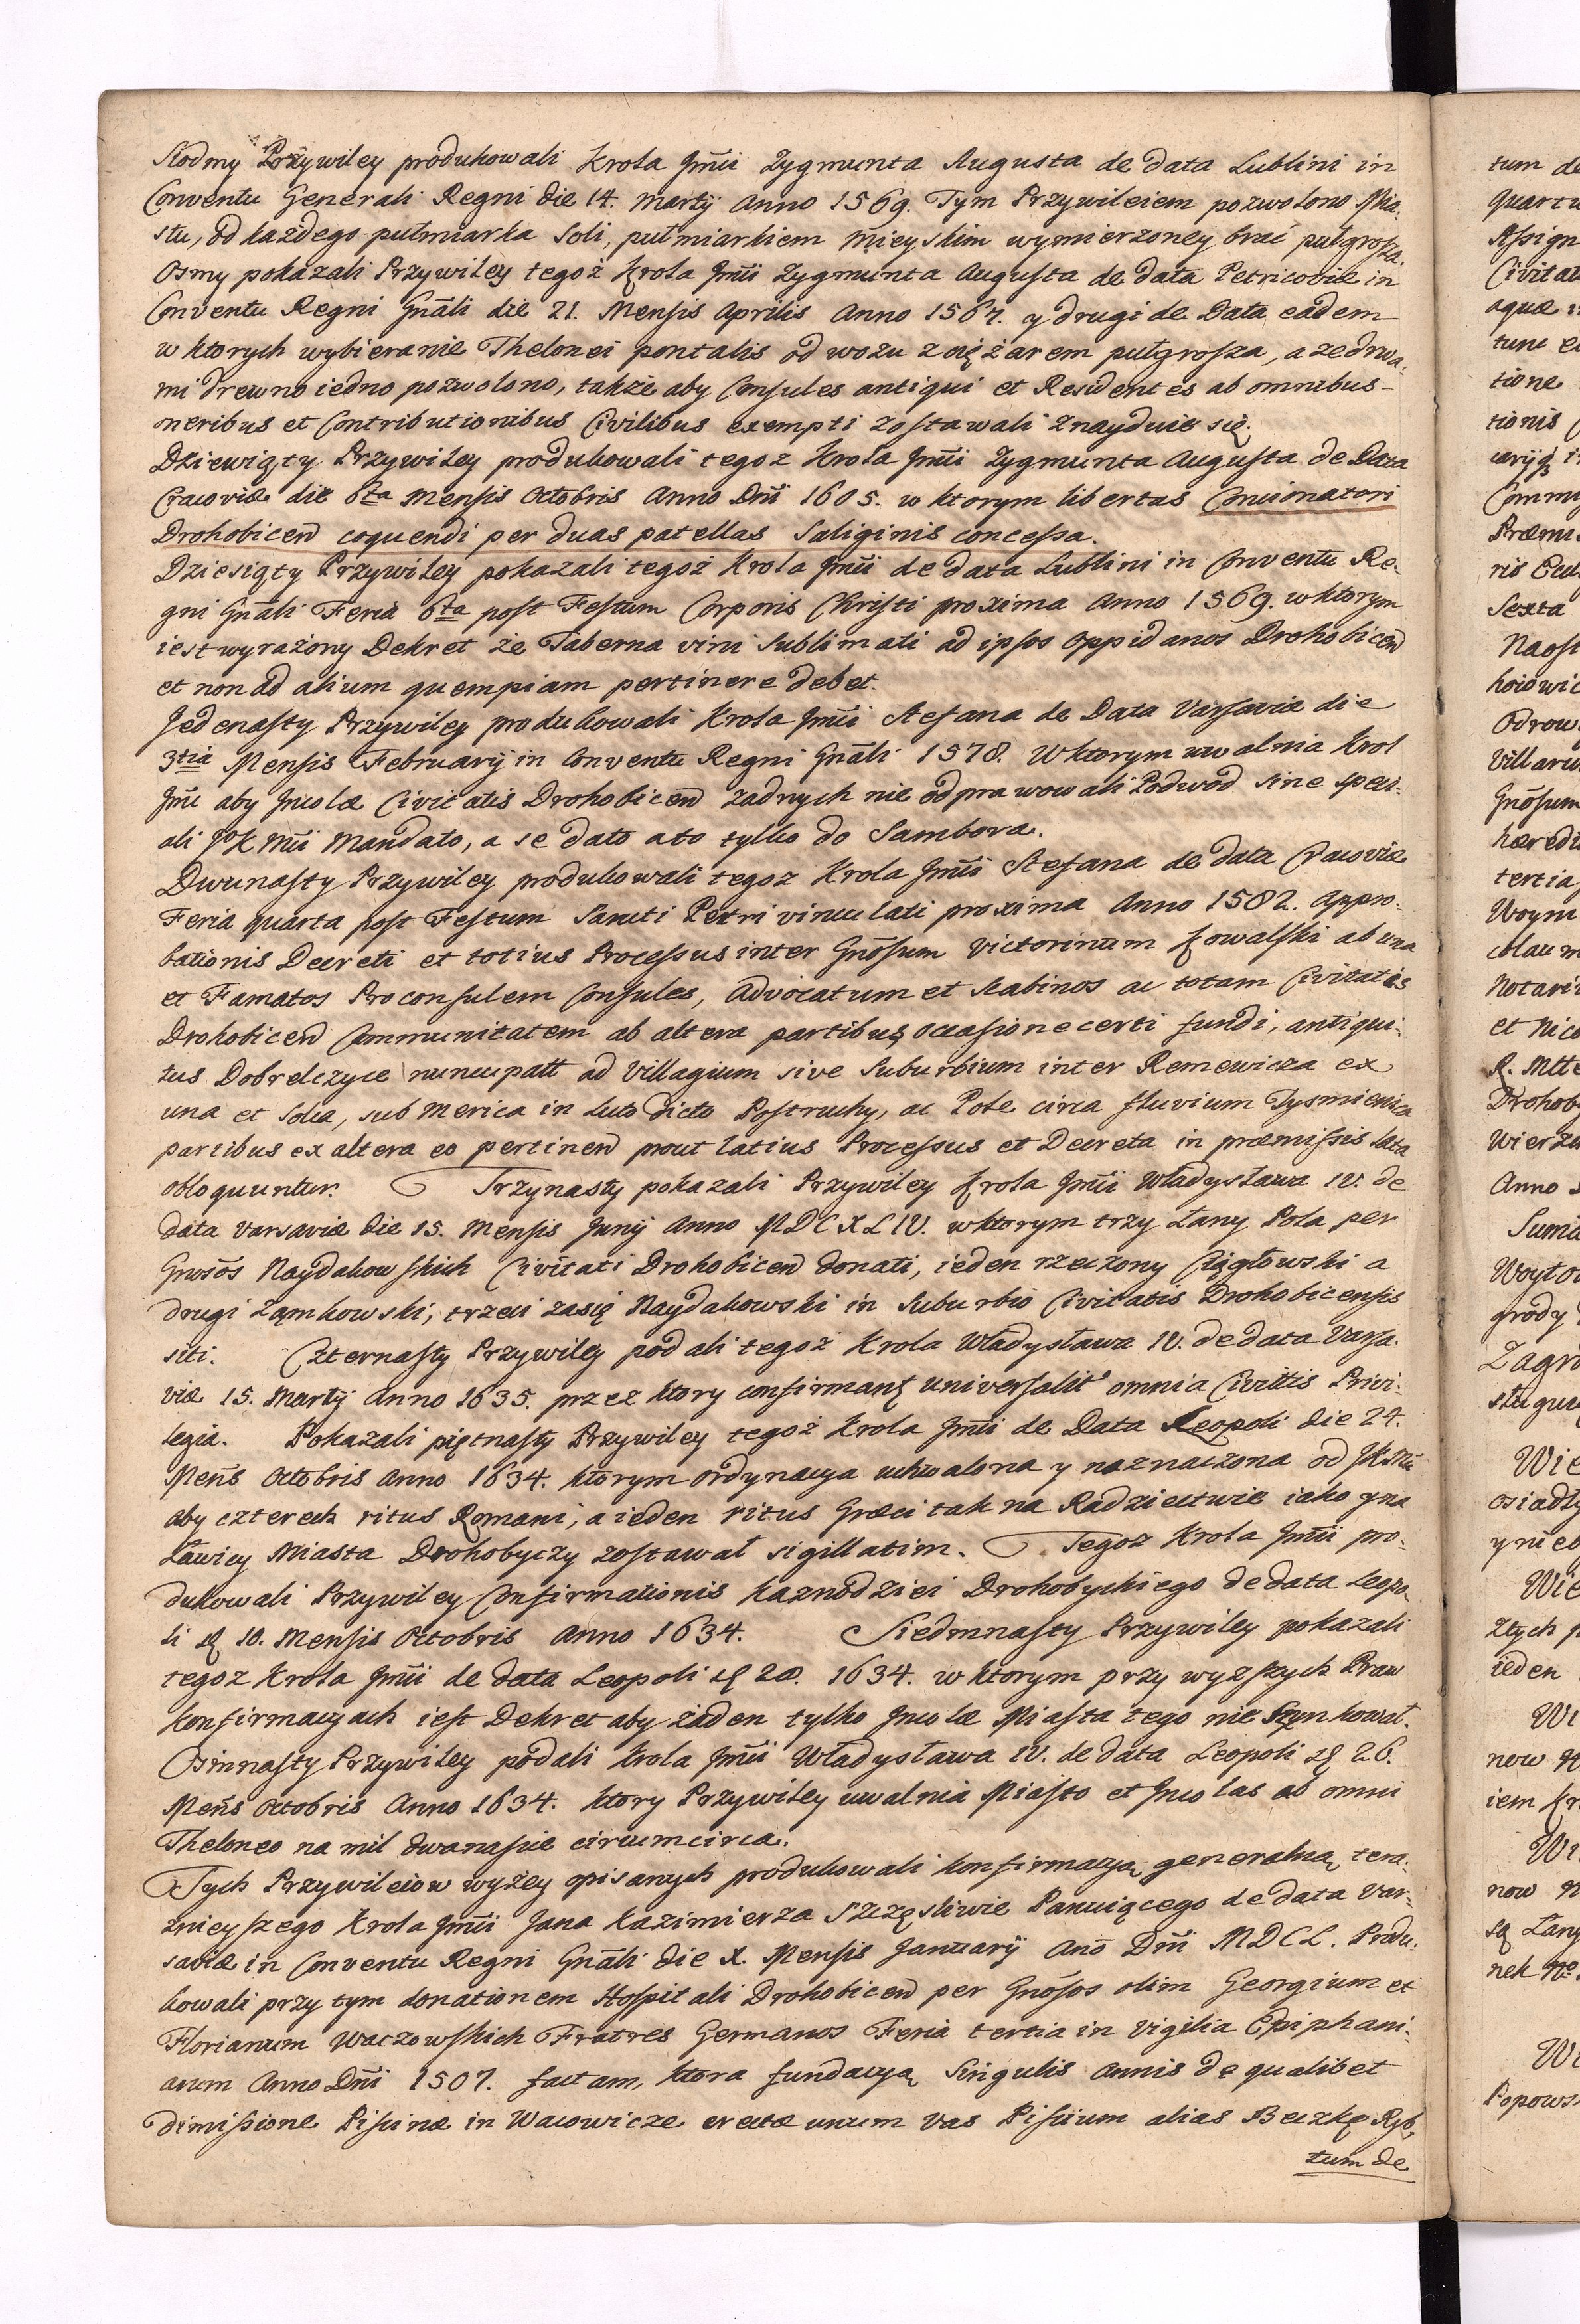 Siodmy Przywiley produkowali Krola Jmći Zygmunta Augusta de data Lublini in
Conventu Generali Regni die 14. Martij Anno 1569. Tym Przywileiem pozwolono Mia-
stu, od każdego pułmiarka Soli, pułmiarkiem Mieyskim wymierzoney brać pułgrosza.
Osmy pokazali Przywiley tegoż Krola Jmći Zygmunta Augusta de data Petricoviæ in
Conventu Regni Gnāli die 21. Mensis Aprilis Anno 1567. y drugi de Data eadem
w ktorych wybieranie Thelonei pontalis od wozu z ciężarem pułgrosza, a ze drwa-
mi drewno iedno pozwolono, także aby Consules antiqui et Residentes ab omnibus
oneribus et Contributionibus Civilibus exempti zostawali znayduie się.
Dziewiąty Przywiley produkowali tegoz Krola Jmći Zygmunta Augusta de Data
Cracoviæ die 6ta Mensis Octobris Anno Dnī 1605. w ktorym libertas Concionatori
Drohobicen̄ coquendi per duas patellas Saliginis concessa.
Dziesiąty Przywiley pokazali tegoż Krola Jmći de data Lublini in Conventu Re-
gni Gnāli Feria 6ta post Festum Corporis Christi proxima Anno 1569. w ktorym
iest wyrażony Dekret że Taberna vini Sublimati ad ipsos oppidanos Drohobicen̄
et non ad alium quempiam pertinere debet.
Jedenasty Przywiley produkowali Krola Jmći Stefana de Data Varsaviæ die
3tia Mensis Februarij in Conventu Regni Gnāli 1578. W ktorym uwalnia Krol
Jmć aby Jncolæ Civitatis Drohobicen̄ zadnych nie odprawowali Podwod sine speci-
ali JK Mći Mandato, a se dato a to tylko do Sambora.
Dwunasty Przywiley produkowali tegoz Krola Jmći Stefana de data Cracoviæ
Feria quarta post Festum Sancti Petri vinculati proxima Anno 1582. Appro-
bationis Decreti et totius Processus inter Gnōsum Victorinum Kowalski ab una
et Famatos Proconsulem Consules, Advocatum et Scabinos ac totam Civitatis
Drohobicen̄ Communitatem ab altera partibus occasione certi fundi, antiqui-
tus Dobrelczyce nuncupatt ad Villagium sive Suburbium inter Remewicza ex
una et Solca, sub Merica in luto dicto Postruchy, ac Pole circa fluvium Tysmienica
partibus ex altera eo pertinen̄ prout latius Processus et Decreta in præmissis lata
obloquuntur. Trzynasty pokazali Przywiley Krola Jmći Władysława IV. de
data Varsaviæ die 15. Mensis Junij Anno MDCXLIV. w ktorym trzy Łany Pola per
Gnrōs Naydakowskich Civitati Drohobicen̄ donati, ieden rzeczony Ciągłowski a
drugi Zamkowski, trzeci zasię Naydakowski in Suburbio Civitatis Drohobicensis
siti. Czternasty Przywiley podali tegoż Krola Władysława IV. de data Varsa-
viæ 15. Martij Anno 1635. przez ktory confirmant universalit omnia Civittis Privi-
legia. Pokazali piętnasty Przywiley tegoż Krola Jmći de Data Leopoli die 24.
Mens̄ Octobris Anno 1634. ktorym Ordynacya uchwalona y naznaczona od JK Mći
aby czterech ritus Romani, a ieden ritus Græci tak na Radziectwie iako y na
Ławicy Miasta Drohobyczy zostawał sigillatim. Tegoż Krola Jmći pro-
dukowali Przywiley Confirmationis Kaznodziei Drohobyckiego de data Leopo-
li 10. Mensis Octobris Anno 1634. Siedmnasty Przywiley pokazali
tegoz Krola Jmći de data Leopoli 20. 1634. w ktorym przy wyzszych Praw
Konfirmacyach iest Dekret aby żaden tylko Jncolæ Miasta tego nie Szynkował.
Osmnasty Przywiley podali Krola Jmći Władysława IV. de data Leopoli 26.
Mens̄ Octobris Anno 1634. ktory Przywiley uwalnia Miasto et Jncolas ab omni
Theloneo na mil dwanascie circumcirca.
Tych Przywileiow wyżey opisanych produkowali konfirmacyą generalną tera-
znieyszego Krola Jmći Jana Kazimierza Szczęsliwie Panuiącego de data Var-
saviæ in Conventu Regni Gnāli die X. Mensis Januarij Anō Dnī MDCL. Produ-
kowali przy tym donationem Hospitali Drohobicen̄ per Gnōsos olim Georgium et
Florianum Waczowskich Fratres Germanos Feria tertia in Vigilia Epiphani-
arum Anno Dnī 1507. factam, ktora fundacya Singulis Annis de qualibet
dimissione Piscinæ in Wacowicze erectæ unum Vas Piscium alias Beczkę Ryb,
tum de